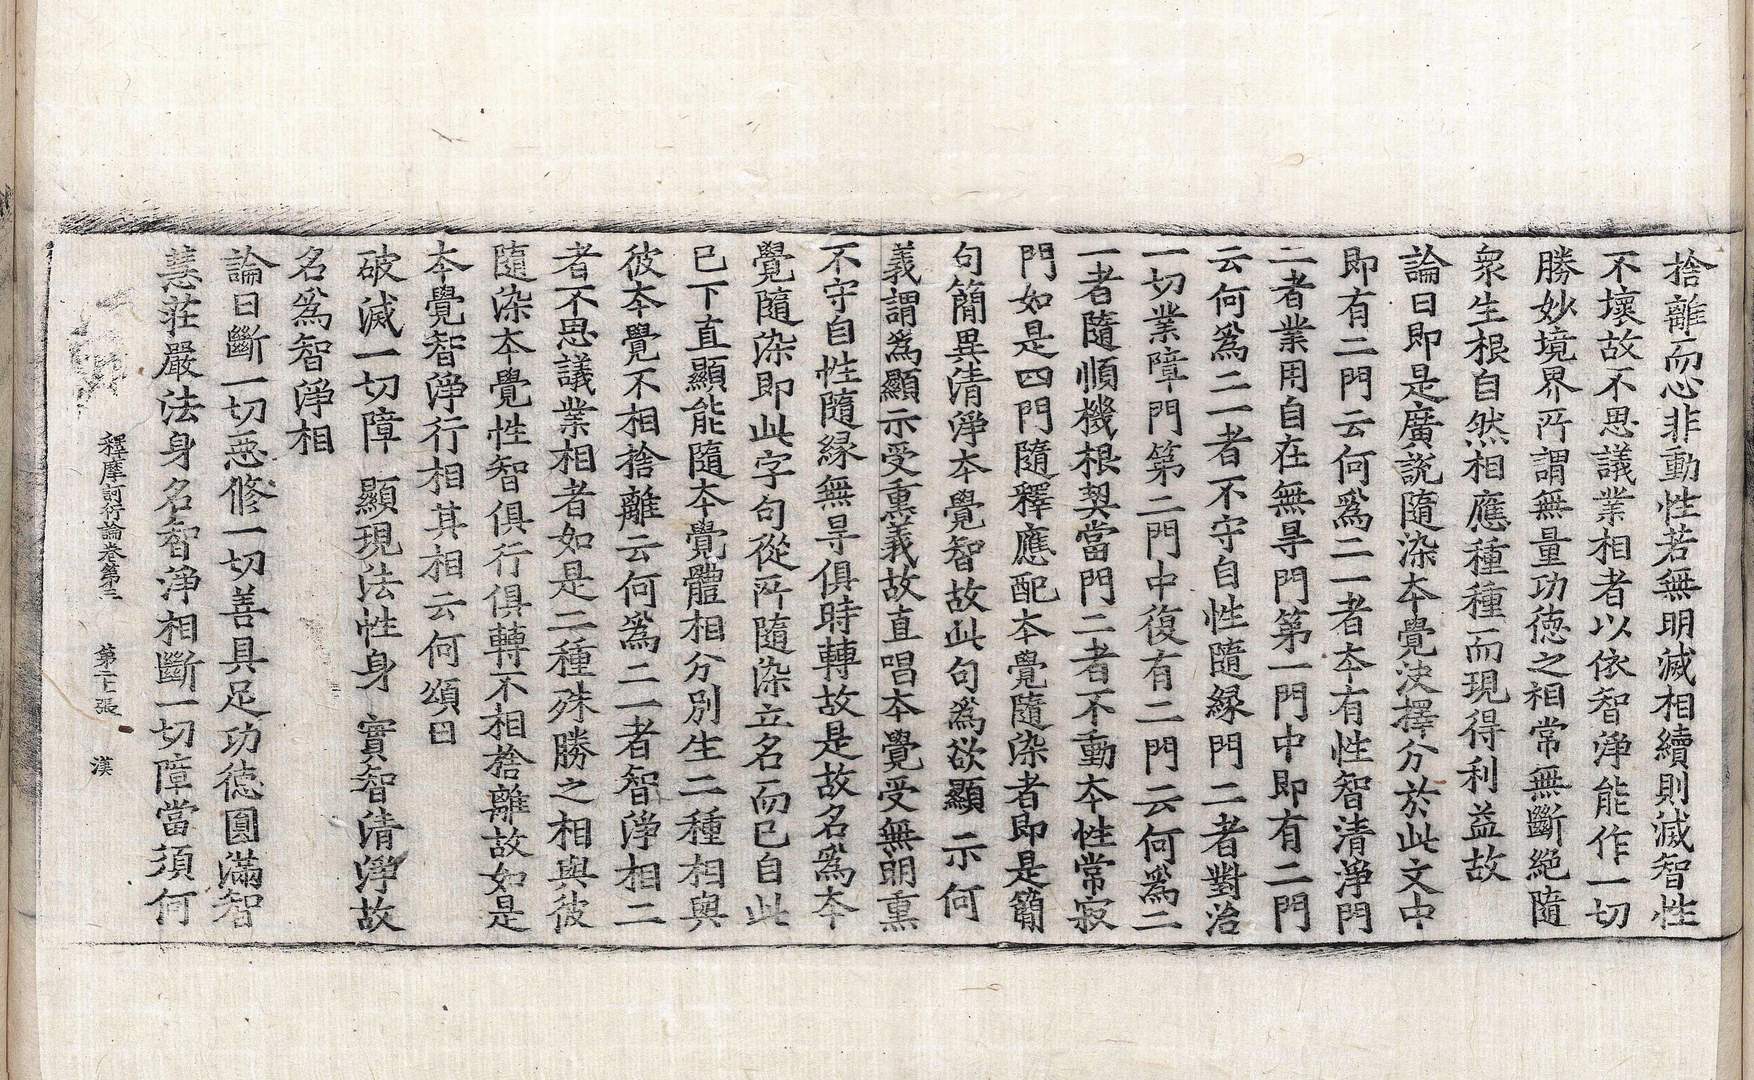 捨離而心非動性若無明滅相續則滅智性
不壞故不思議業相者以依智淨能作一切
勝妙境界所謂無量功德之相常無斷絶隨
衆生根自然相應種種而現得利益故
論曰即是廣説隨染本覺決擇分於此文中
即有二門云何爲二一者本有性智清淨門
二者業用自在無㝵門第一門中即有二門
云何爲二一者不守自性隨縁門二者對治
一切業障門第二門中復有二門云何爲二
一者隨順機根契當門二者不動本性常寂
門如是四門隨釋應配本覺隨染者即是簡
句簡異清淨本覺智故此句爲欲顯示何
義謂爲顯示受熏義故直唱本覺受無明熏
不守自性隨縁無㝵俱時轉故是故名爲本
覺隨染即此字句從所隨染立名而已自此
已下直顯能隨本覺體相分別生二種相與
彼本覺不相捨離云何爲二一者智淨相二
者不思議業相者如是二種殊勝之相與彼
隨染本覺性智俱行俱轉不相捨離故如是
本覺智淨行相其相云何頌曰
破滅一切障　顯現法性身　實智清淨故
名爲智淨相
論曰斷一切惡修一切善具足功德圓滿智
慧莊嚴法身名智淨相斷一切障當須何
釋摩訶衍論卷第三　第二十張　漢